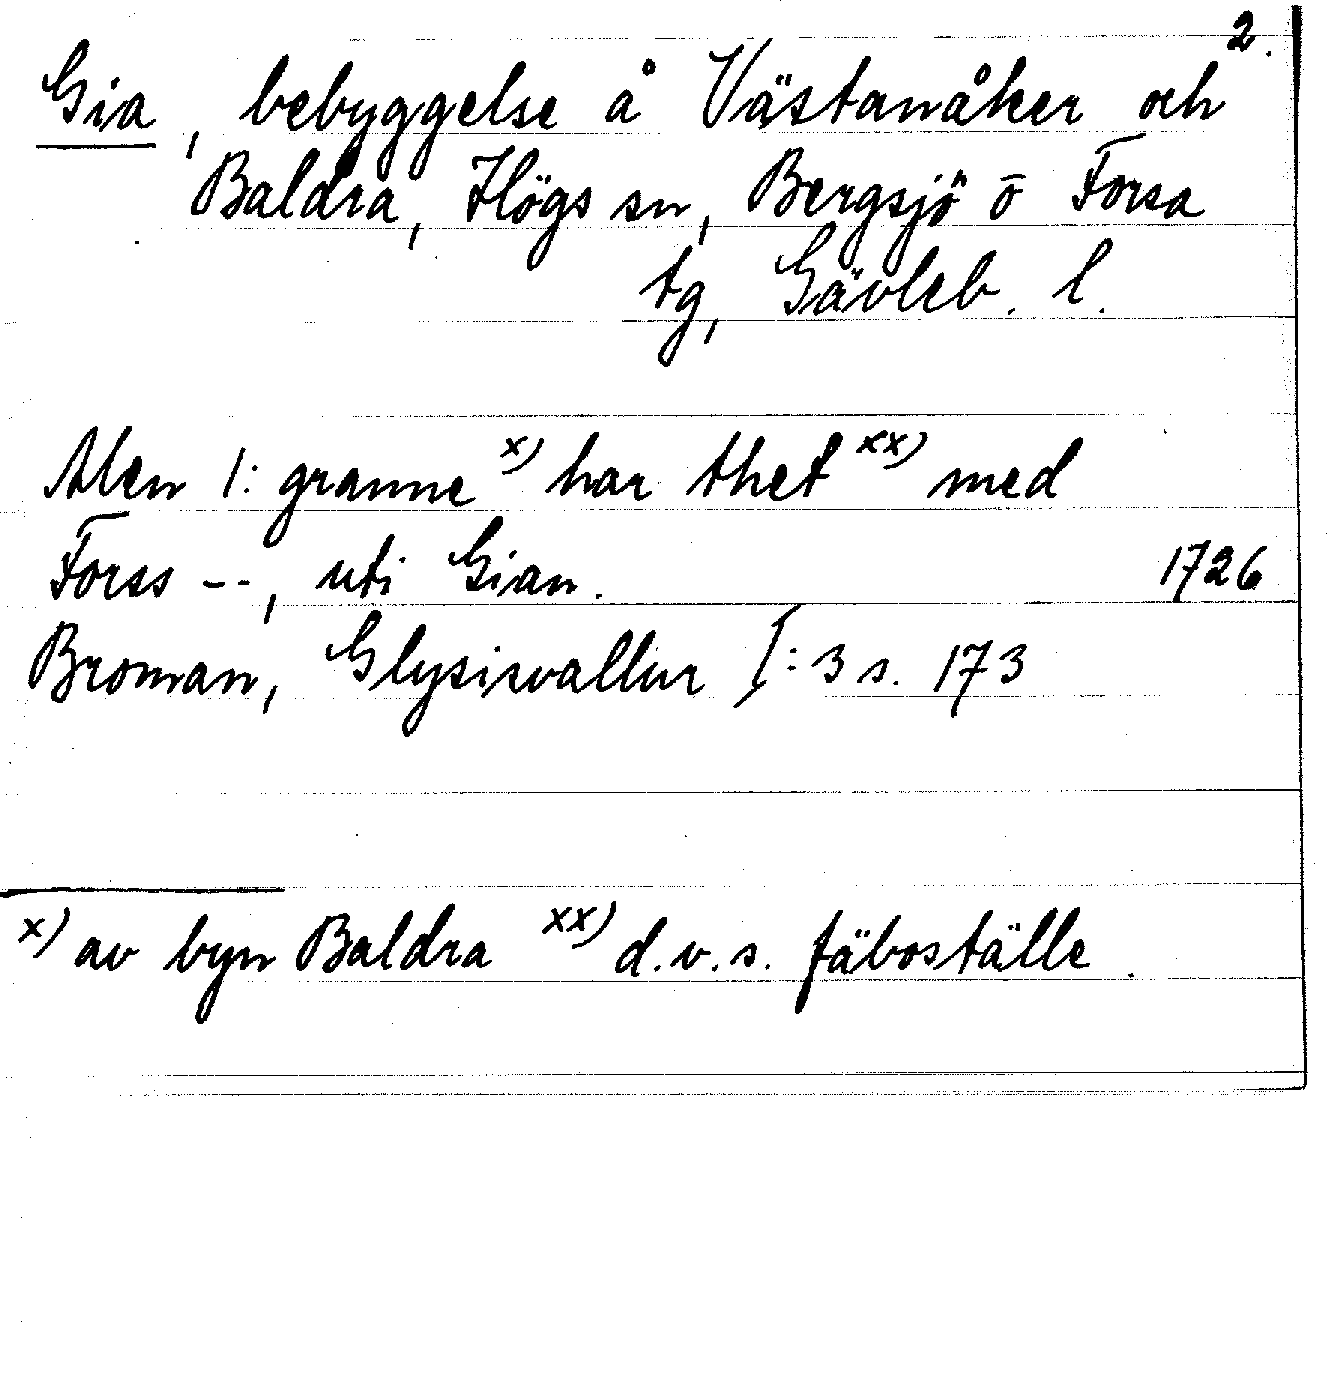 2.
Gia, bebyggelse å Västanåker och
Baldra, Högs sn, Bergsjö o Forsa
tg, Gävleb. l.
Men 1: granne x) har thet xx) med
Forss --, uti Gian. 1726
Broman, Glysisvallur I: 3 s. 173
x) av byn Baldra xx) d.v.s. fäboställe.